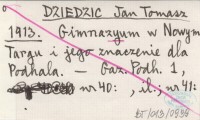 DZIEDZIC Jan Tomasz
1913. Gimnazyum w Nowym
Targu i jego znaczenie dla
Podhala. – Gaz. Podh. 1,
nr 40: , il.; nr 41: